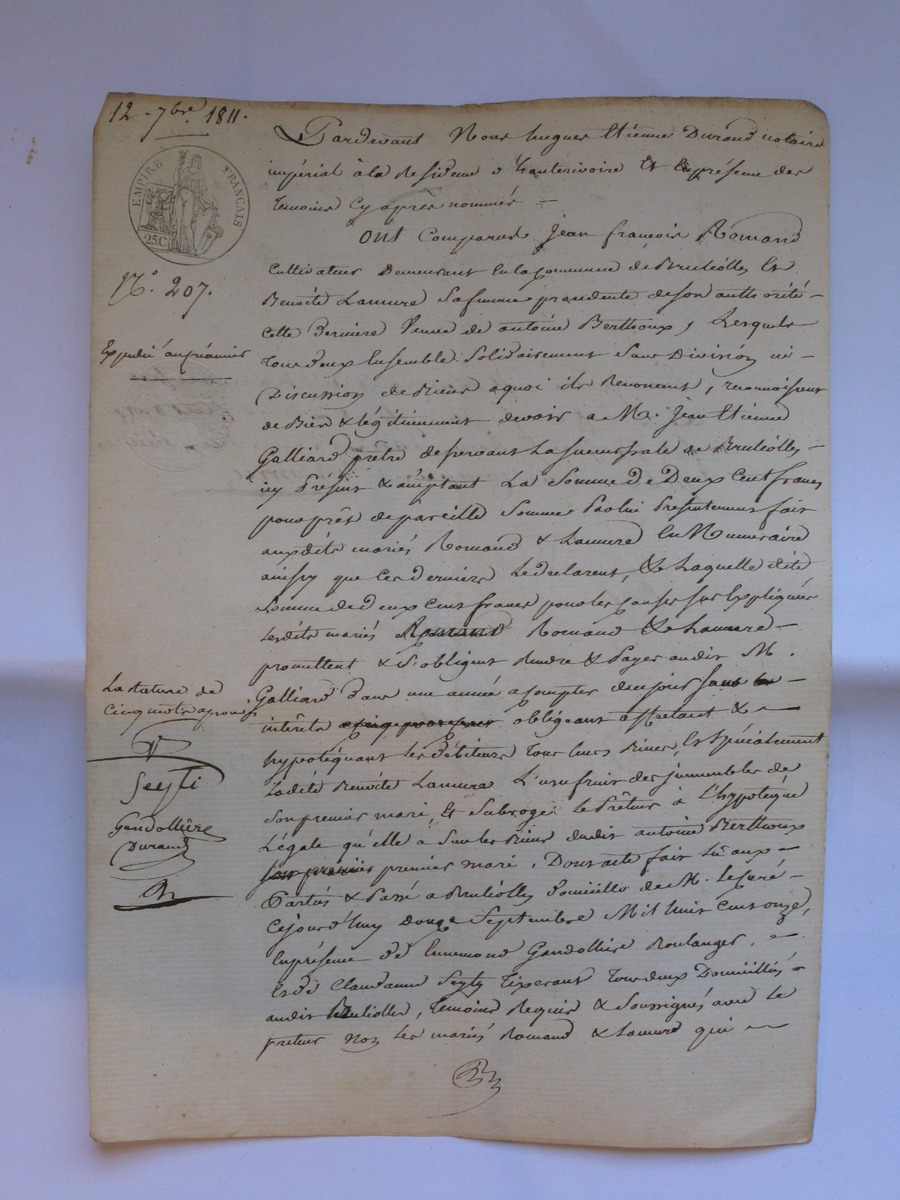 12. 7bre. 1811.
EMPIRE FRANÇAIS
25C
N°. 207.
Expédié au préancier
Pardevant Nous hugues Etienne Durand notaire
impérial à la Residence d'hauterivoire Et En présence des
temoins Cy après nommés —
Ont Comparus Jean françois Romand
Cultivateur Demeurant En la Commune de Brulliolles Et
Benoîte Lamure Sa femme procedente de Son authorité —
Cette Derniere Veuve de antoine Berthoux, Lesquels
tous deux Ensemble Solidairement Sans Division ni —
Discussion de Biens aquoi ils Renoncent, reconnoissent
de Bien & légitimement devoir a M. Jean Etienne
Galliard prêtre deservant La Succursale de Brulliolles —
icy Présent & acceptant La Somme de Deux Cent francs
pour prêt de pareille Somme Presentement fait
auxdits mariés Romand & Lamure En Numeraire
ainsy que Ces derniers Le declarent, & Laquelle dite
Somme de deux Cent francs pour les Causes Sus Expliquées
Lesdits mariés Romand & Lamure —
promettent & S'obligent Rendre & Payer audit M.
Galliard Dans une année a Compter de ce jour Sans
intérêts obligeant affectant & —
hypotéquant les Débiteurs tous leurs Biens, Et Spécialement
Ladite Benoîte Lamure L'usufruit des immeubles de
Son premier mari, Et Subroge le Prêteur à L'hypotéque
Légale qu'elle a Sur les Biens dudit antoine Berthoux
Son premier premier mari, Dont acte fait Lû aux —
Parties & Passé a Brulliolles Domicille de M. le Curé —
Cejourd'huy Douze Septembre Mil huit Cent onze,
En présence de Ennemond Gandollière Boulanger, —
Et de Claudanne Seyty Tixerant tous deux Domicilliés —
audit Brulliolles, temoins Requis & Soussignés avec le
prêteur Non Les mariés Romand & Lamure qui —
La rature de
Cinq mots aprouvé
Seyti
Gandollière
Durand